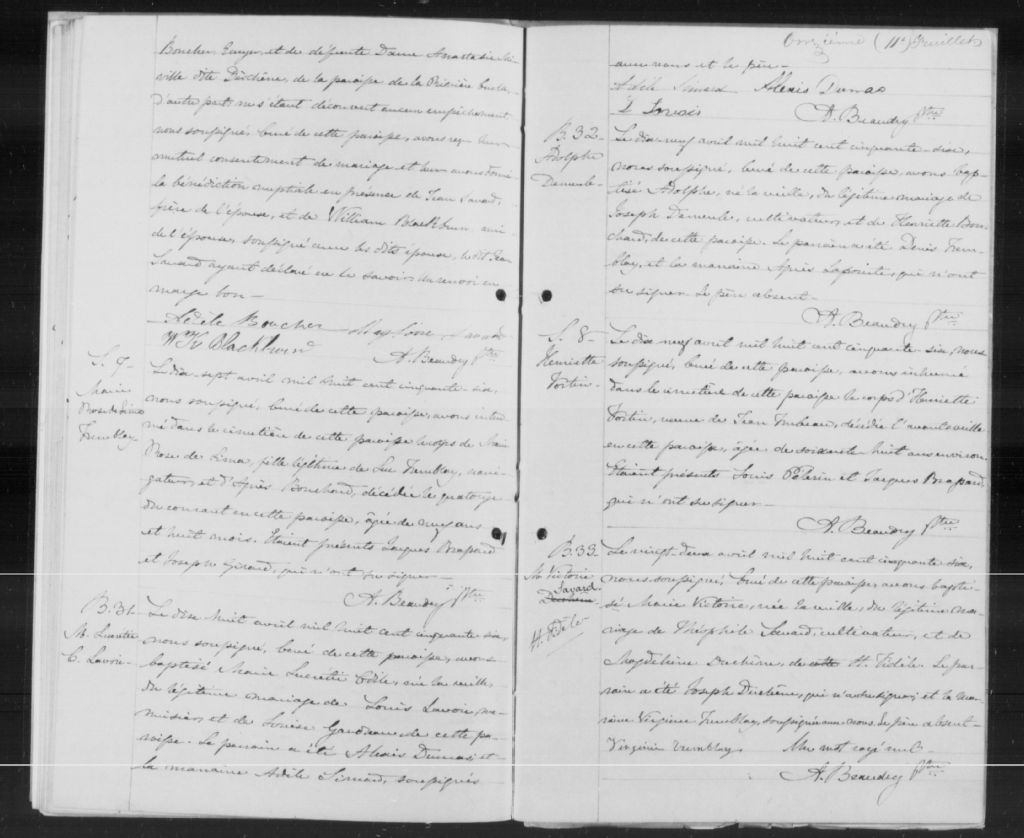 Boucher, Ecuyer, et de défunte Dame Anastasie
ville dite Duchêne, de la paroisse de la Rivière
d'autre part, ne s'étant découvert aucun empêchement
nous soussigné, Curé de cette paroisse, avons reçu leur
mutuel consentement de mariage et leur avons donné
la bénédiction nuptiale en présence de Jean Savard,
frère de l'épouse, et de William Blackburn, ami
de l'épouse, soussigné avec les dits époux, le dit Jean
Savard ayant déclaré ne le savoir. Un renvoi en
marge bon -
Adèle Boucher Savard
Wm Blackburn
A. Beaudry Ptre
S. 7-
Marie
Rose de Lima
Tremblay
Le dix-sept avril mil huit cent cinquante-six,
nous soussigné, Curé de cette paroisse, avons inhu-
mé dans le cimetière de cette paroisse le corps de Marie
Rose de Lima, fille légitime de Luc Tremblay, navi-
gateur, et d'Agnès Bouchard, décédée le quatorze
du courant en cette paroisse, âgée de neuf ans
et huit mois. Etaient présents Jacques Brassard
et Joseph Girard, qui n'ont su signer -
A. Beaudry Ptre
B. 31-
M. Lucrette
O. Lavoie-
Le dix-huit avril mil huit cent cinquante-six,
nous soussigné, Curé de cette paroisse, avons
baptisé Marie Lucrette Odile, née la veille,
du légitime mariage de Louis Lavoie, me-
nuisier, et de Louise Gaudreau de cette pa-
roisse. Le parrain a été Alexis Dumas et
la marraine Adèle Simard, soussignés
Onzième (11e) Feuillet
avec nous et le père -
Adèle Simard Alexis Dumas
L Lavoie
A. Beaudry Ptre
B. 32-
Adolphe
Demeule-
Le dix-neuf avril mil huit cent cinquante-six,
nous soussigné, Curé de cette paroisse, avons bap-
tisé Adolphe, né la veille, du légitime mariage de
Joseph Demeule, cultivateur, et de Henriette Bou-
chard, de cette paroisse. Le parrain a été Denis Trem-
blay, et la marraine Agnès Lapointe, qui n'ont
su signer. Le père absent -
A. Beaudry Ptre
S. 8-
Henriette
Fortin-
Le dix-neuf avril mil huit cent cinquante-six, nous
soussigné, Curé de cette paroisse, avons inhumé
dans le cimetière de cette paroisse le corps d'Henriette
Fortin, veuve de Jean Imbeau, décédée l'avant-veille
en cette paroisse, âgée de soixante-huit ans environ.
Etaient présents Louis Pélerin et Jacques Brassard,
qui n'ont su signer -
A. Beaudry Ptre
B. 33-
M. Victoire
Savard
Duchêne
St. Fidèle-
Le vingt-deux avril mil huit cent cinquante-six,
nous soussigné, Curé de cette paroisse, avons bapti-
sé Marie Victoire, née la veille, du légitime ma-
riage de Théophile Savard, cultivateur, et de
Magdeleine Duchêne, de cette St. Fidèle. Le par-
rain a été Joseph Duchêne, qui n'a su signer, et la mar-
raine Virginie Tremblay, soussignée avec nous. Le père absent -
Virginie Tremblay. Un mot rayé nul -
A. Beaudry Ptre